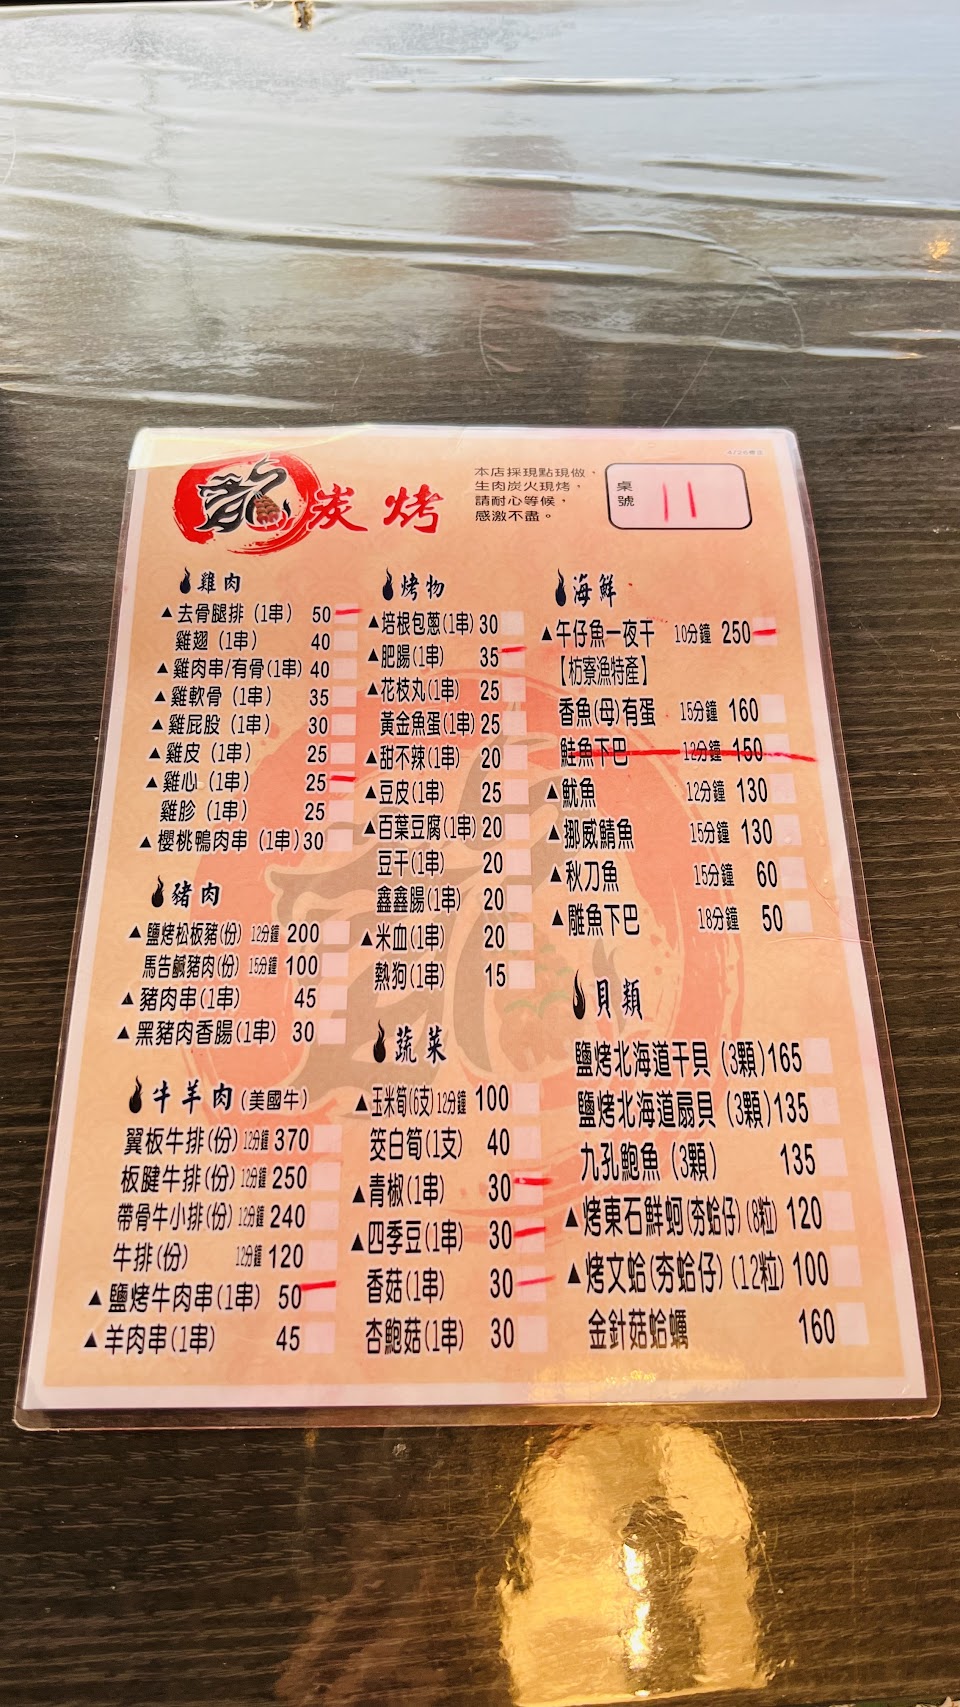 龍炭烤
本店採現點現做，
生肉炭火現烤，
請耐心等候，
感激不盡。
桌號 11
雞肉
▲去骨腿排（1串） 50
雞翅（1串） 40
▲雞肉串/有骨(1串) 40
▲雞軟骨（1串） 35
▲雞屁股（1串） 30
▲雞皮（1串） 25
▲雞心（1串） 25
雞胗（1串） 25
▲櫻桃鴨肉串（1串)30
豬肉
▲鹽烤松板豬(份) 12分鐘 200
馬告鹹豬肉(份) 15分鐘 100
▲豬肉串(1串) 45
▲黑豬肉香腸(1串) 30
牛羊肉(美國牛)
翼板牛排(份) 12分鐘 370
板腱牛排(份) 12分鐘 250
帶骨牛小排(份) 12分鐘 240
牛排(份) 12分鐘 120
▲鹽烤牛肉串(1串) 50
▲羊肉串(1串) 45
烤物
▲培根包蔥(1串) 30
▲肥腸(1串) 35
▲花枝丸(1串) 25
黃金魚蛋(1串) 25
▲甜不辣(1串) 20
▲豆皮(1串) 25
▲百葉豆腐(1串) 20
豆干(1串) 20
鑫鑫腸(1串) 20
▲米血(1串) 20
熱狗(1串) 15
蔬菜
▲玉米筍(6支)12分鐘 100
筊白筍(1支) 40
▲青椒(1串) 30
▲四季豆(1串) 30
香菇(1串) 30
杏鮑菇(1串) 30
海鮮
▲午仔魚一夜干 10分鐘 250
【枋寮漁特產】
香魚(母)有蛋 15分鐘 160
鮭魚下巴 12分鐘 150
▲魷魚 12分鐘 130
▲挪威鯖魚 15分鐘 130
▲秋刀魚 15分鐘 60
▲雕魚下巴 18分鐘 50
貝類
鹽烤北海道干貝（3顆)165
鹽烤北海道扇貝（3顆)135
九孔鮑魚（3顆） 135
▲烤東石鮮蚵(夯蛤仔)(8粒) 120
▲烤文蛤(夯蛤仔)(12粒) 100
金針菇蛤蠣 160